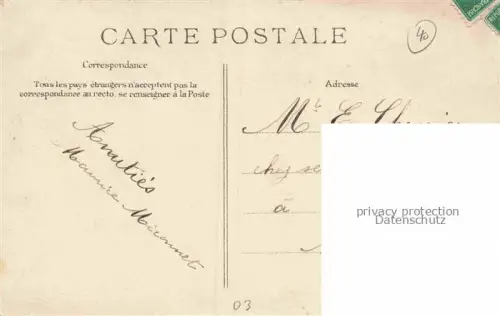 CARTE POSTALE
40
Correspondance
Tous les pays étrangers n'acceptent pas la
correspondance au recto. se renseigner à la Poste
Adresse
Amitiés
Maurice
M E
chez
à
privacy protection
Datenschutz
03